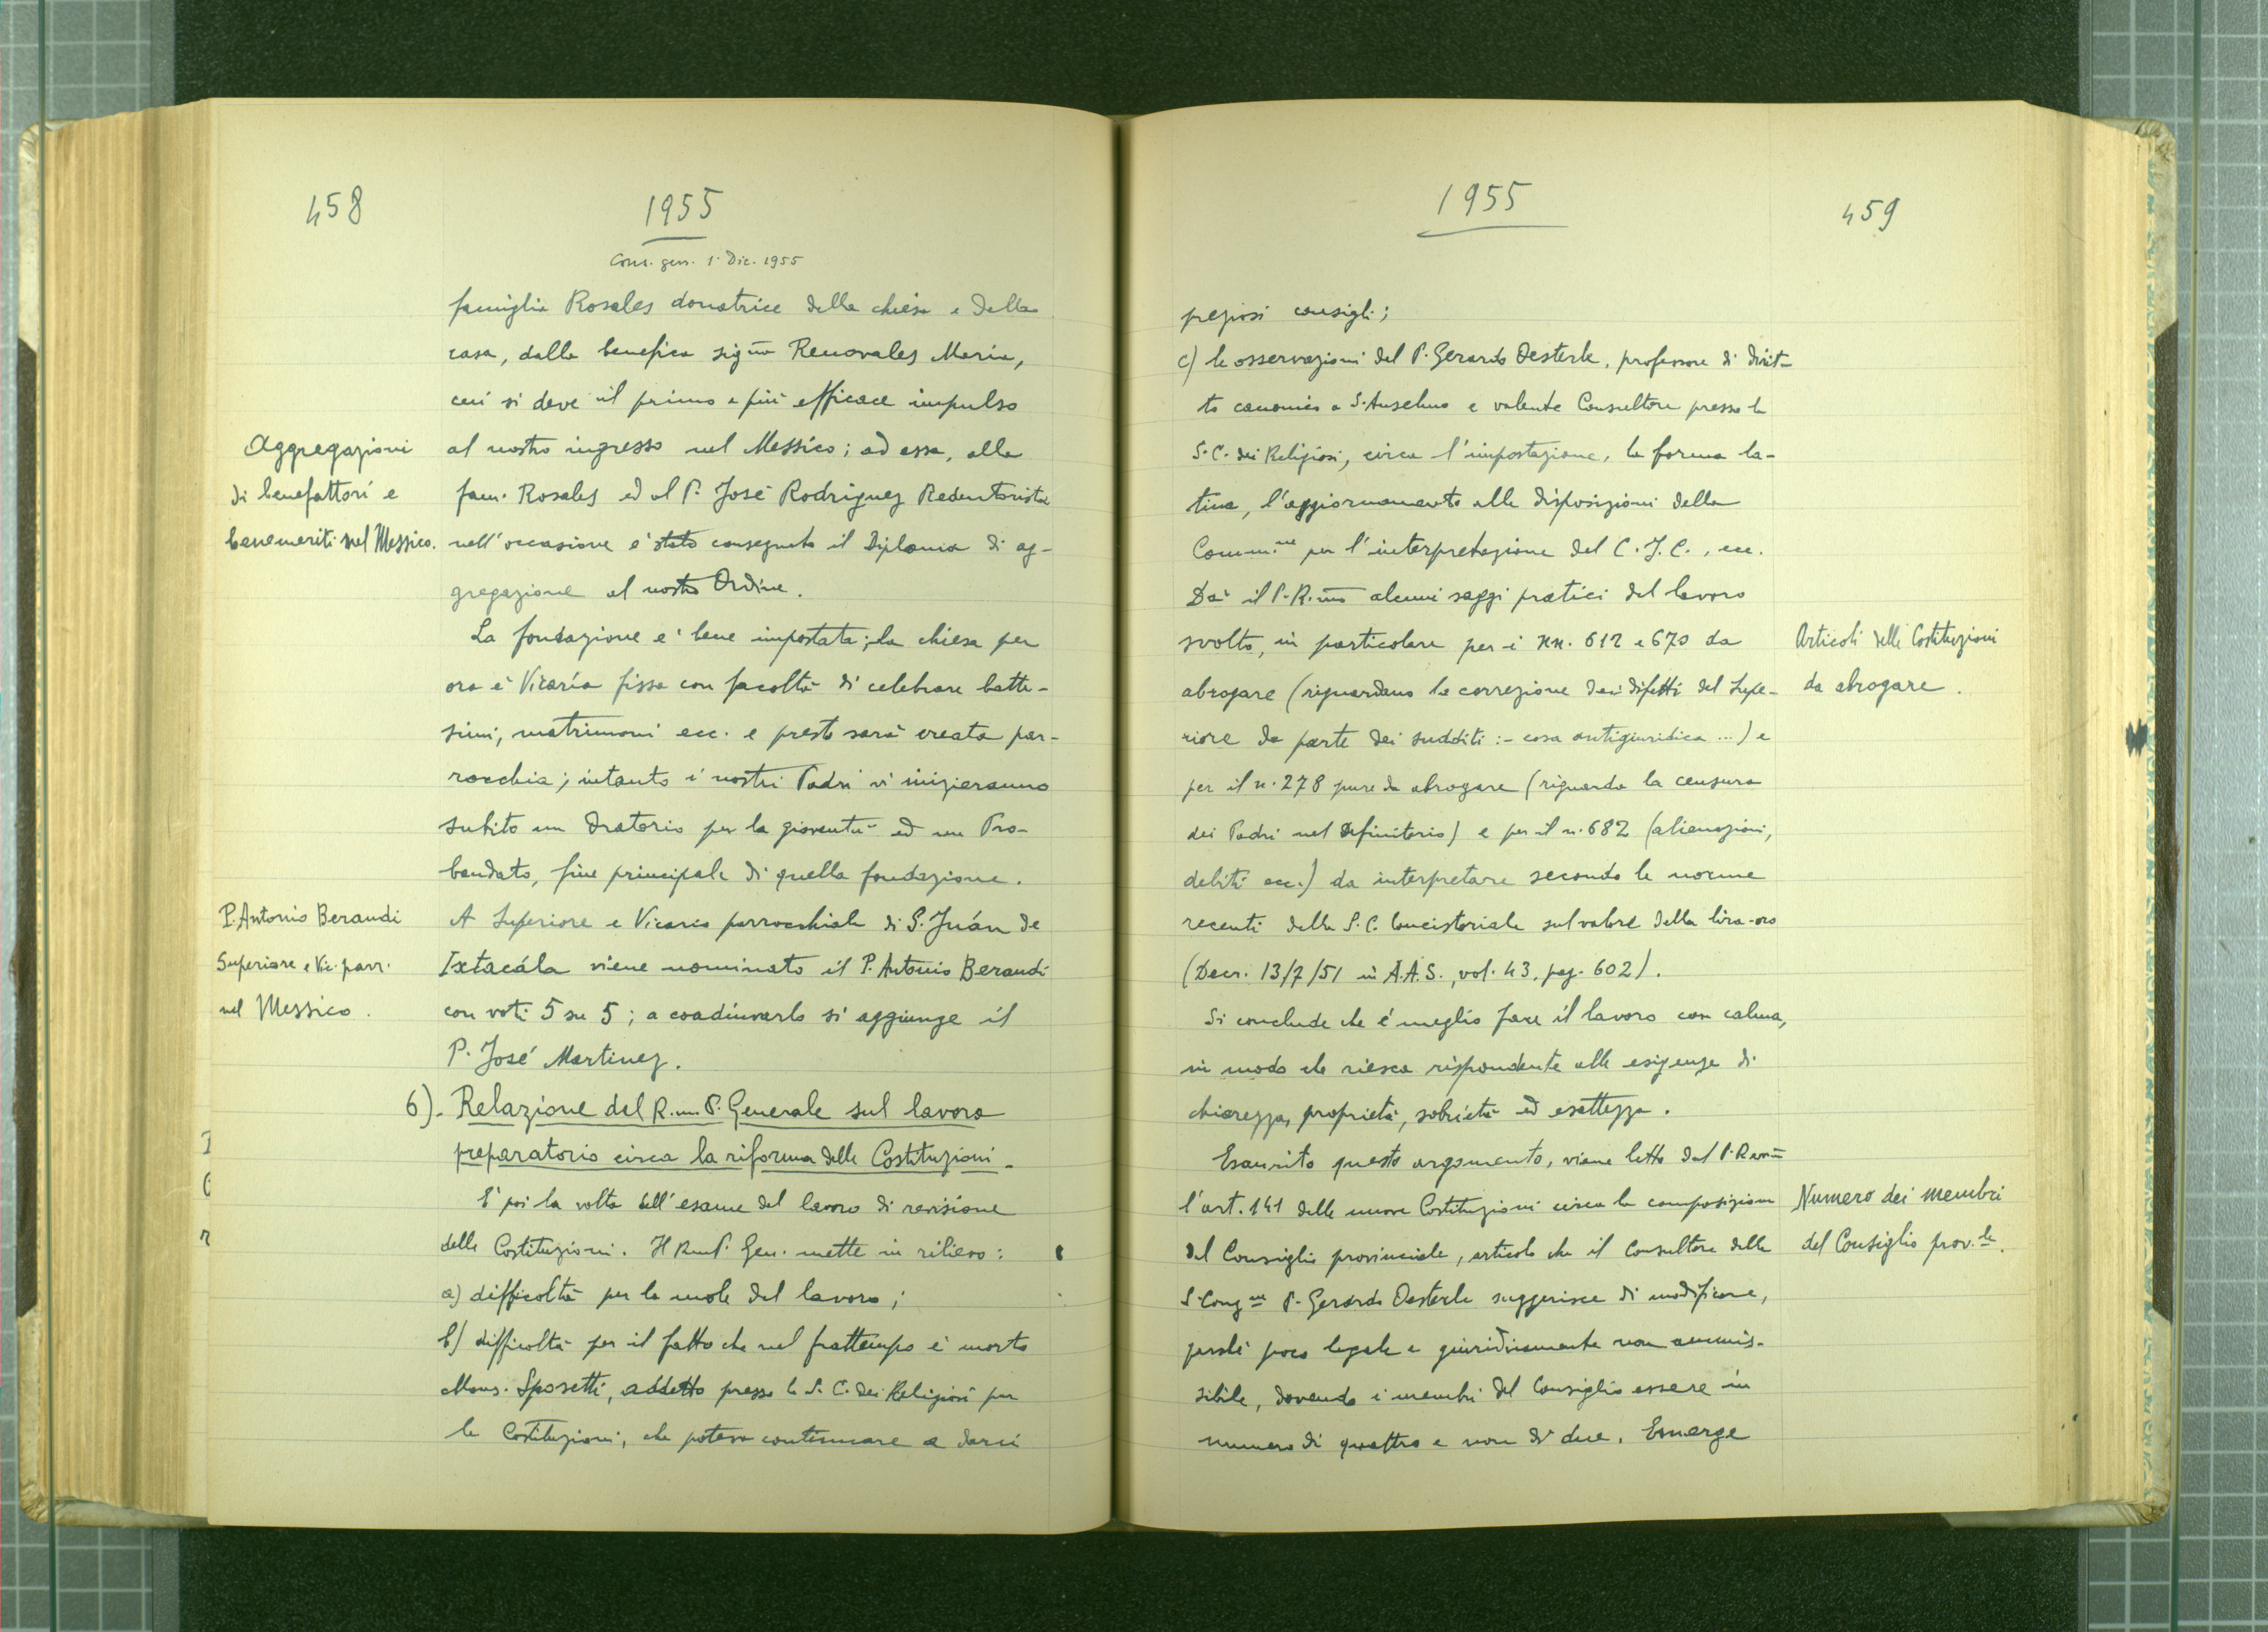 458
1955
Cons. gen. 1. Dic. 1955
famiglia Rosales donatrice della chiesa e della
casa, dalla benefica sigra Renovales Maria,
cui si deve il primo e più efficace impulso
Aggregazioni
di benefattori e
benemeriti nel Messico.
al nostro ingresso nel Messico; ad essa, alla
fam. Rosales ed al P. José Rodriguez Redentorista
nell'occasione è stato consegnato il Diploma di ag-
gregazione al nostro Ordine.
La fondazione è bene impostata; la chiesa per
ora è Vicaría fissa con facoltà di celebrare batte-
simi, matrimoni ecc. e presto sarà creata par-
rocchia; intanto i nostri Padri vi inizieranno
subito un Oratorio per la gioventù ed un Pro-
bandato, fine principale di quella fondazione.
P. Antonio Beraudi
Superiore e Vic. parr.
nel Messico.
A Superiore e Vicario parrocchiale di S. Juán de
Ixtacála viene nominato il P. Antonio Beraudi
con voti 5 su 5; a coadiuvarlo si aggiunge il
P. José Martinez.
6). Relazione del R.mo P. Generale sul lavoro
preparatorio circa la riforma delle Costituzioni.
E' poi la volta dell'esame del lavoro di revisione
delle Costituzioni. Il Rmo P. Gen. mette in rilievo:
a) difficoltà per la mole del lavoro;
b) difficoltà per il fatto che nel frattempo è morto
Mons. Sposetti, addetto presso la S. C. dei Religiosi per
le Costituzioni, che poteva continuare a darci
1955
459
preziosi consigli;
c) le osservazioni del P. Gerardo Oesterle, professore di dirit-
to canonico a S. Anselmo e valente Consultore presso la
S. C. dei Religiosi, circa l'impostazione, la forma la-
tina, l'aggiornamento alle disposizioni della
Comm.ne per l'interpretazione del C. J. C., ecc.
Dà il P. R.mo alcuni saggi pratici del lavoro
svolto, in particolare per i nn. 612 e 670 da
abrogare (riguardano la correzione dei difetti del Supe-
riore da parte dei sudditi :- cosa antigiuridica ...) e
Articoli delle Costituzioni
da abrogare.
per il n. 278 pure da abrogare (riguarda la censura
dei Padri nel Definitorio) e per il n. 682 (alienazioni,
debiti ecc.) da interpretare secondo le norme
recenti della S. C. Concistoriale sul valore della lira-oro
(Decr. 13/7/51 in A.A.S., vol. 43, pag. 602).
Si conclude che è meglio fare il lavoro con calma,
in modo che riesca rispondente alle esigenze di
chiarezza, proprietà, sobrietà ed esattezza.
Esaurito questo argomento, viene letto dal P. Rmo
l'art. 141 delle nuove Costituzioni circa la composizione
del Consiglio provinciale, articolo che il Consultore della
S. Cong.ne P. Gerardo Oesterle suggerisce di modificare,
Numero dei membri
del Consiglio prov.le.
perchè poco legale e giuridicamente non ammis-
sibile, dovendo i membri del Consiglio essere in
numero di quattro e non di due. Emerge